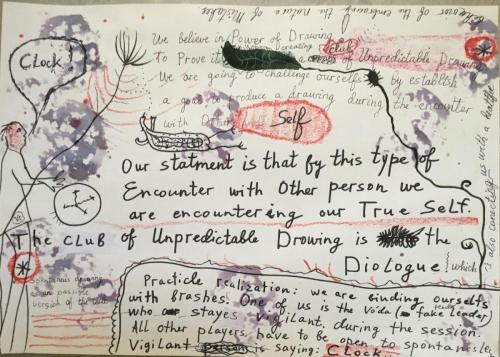 We believe in Power of Drawing
To Prove it creating club of Unpredictable Drawing
We are going to challenge ourselfs by establish
a goal to produce a drawing during the encounter
with
Clock!
Self
Our statment is that by this type of
Encounter with Other person we
are encountering our True Self.
The CLUB of Unpredictable Drowing is the
Diologue! which
is also connecting us with a
Spontanius drawing
version of the
Practicle realization: we are binding ourselfs
with brashes. One of us is the Voda ready fake leader
who stayes vigilant, during the session.
All other players have to be open to spontanside
Vigilant person is saying: Clock
of the embracing the nature of Mistakes